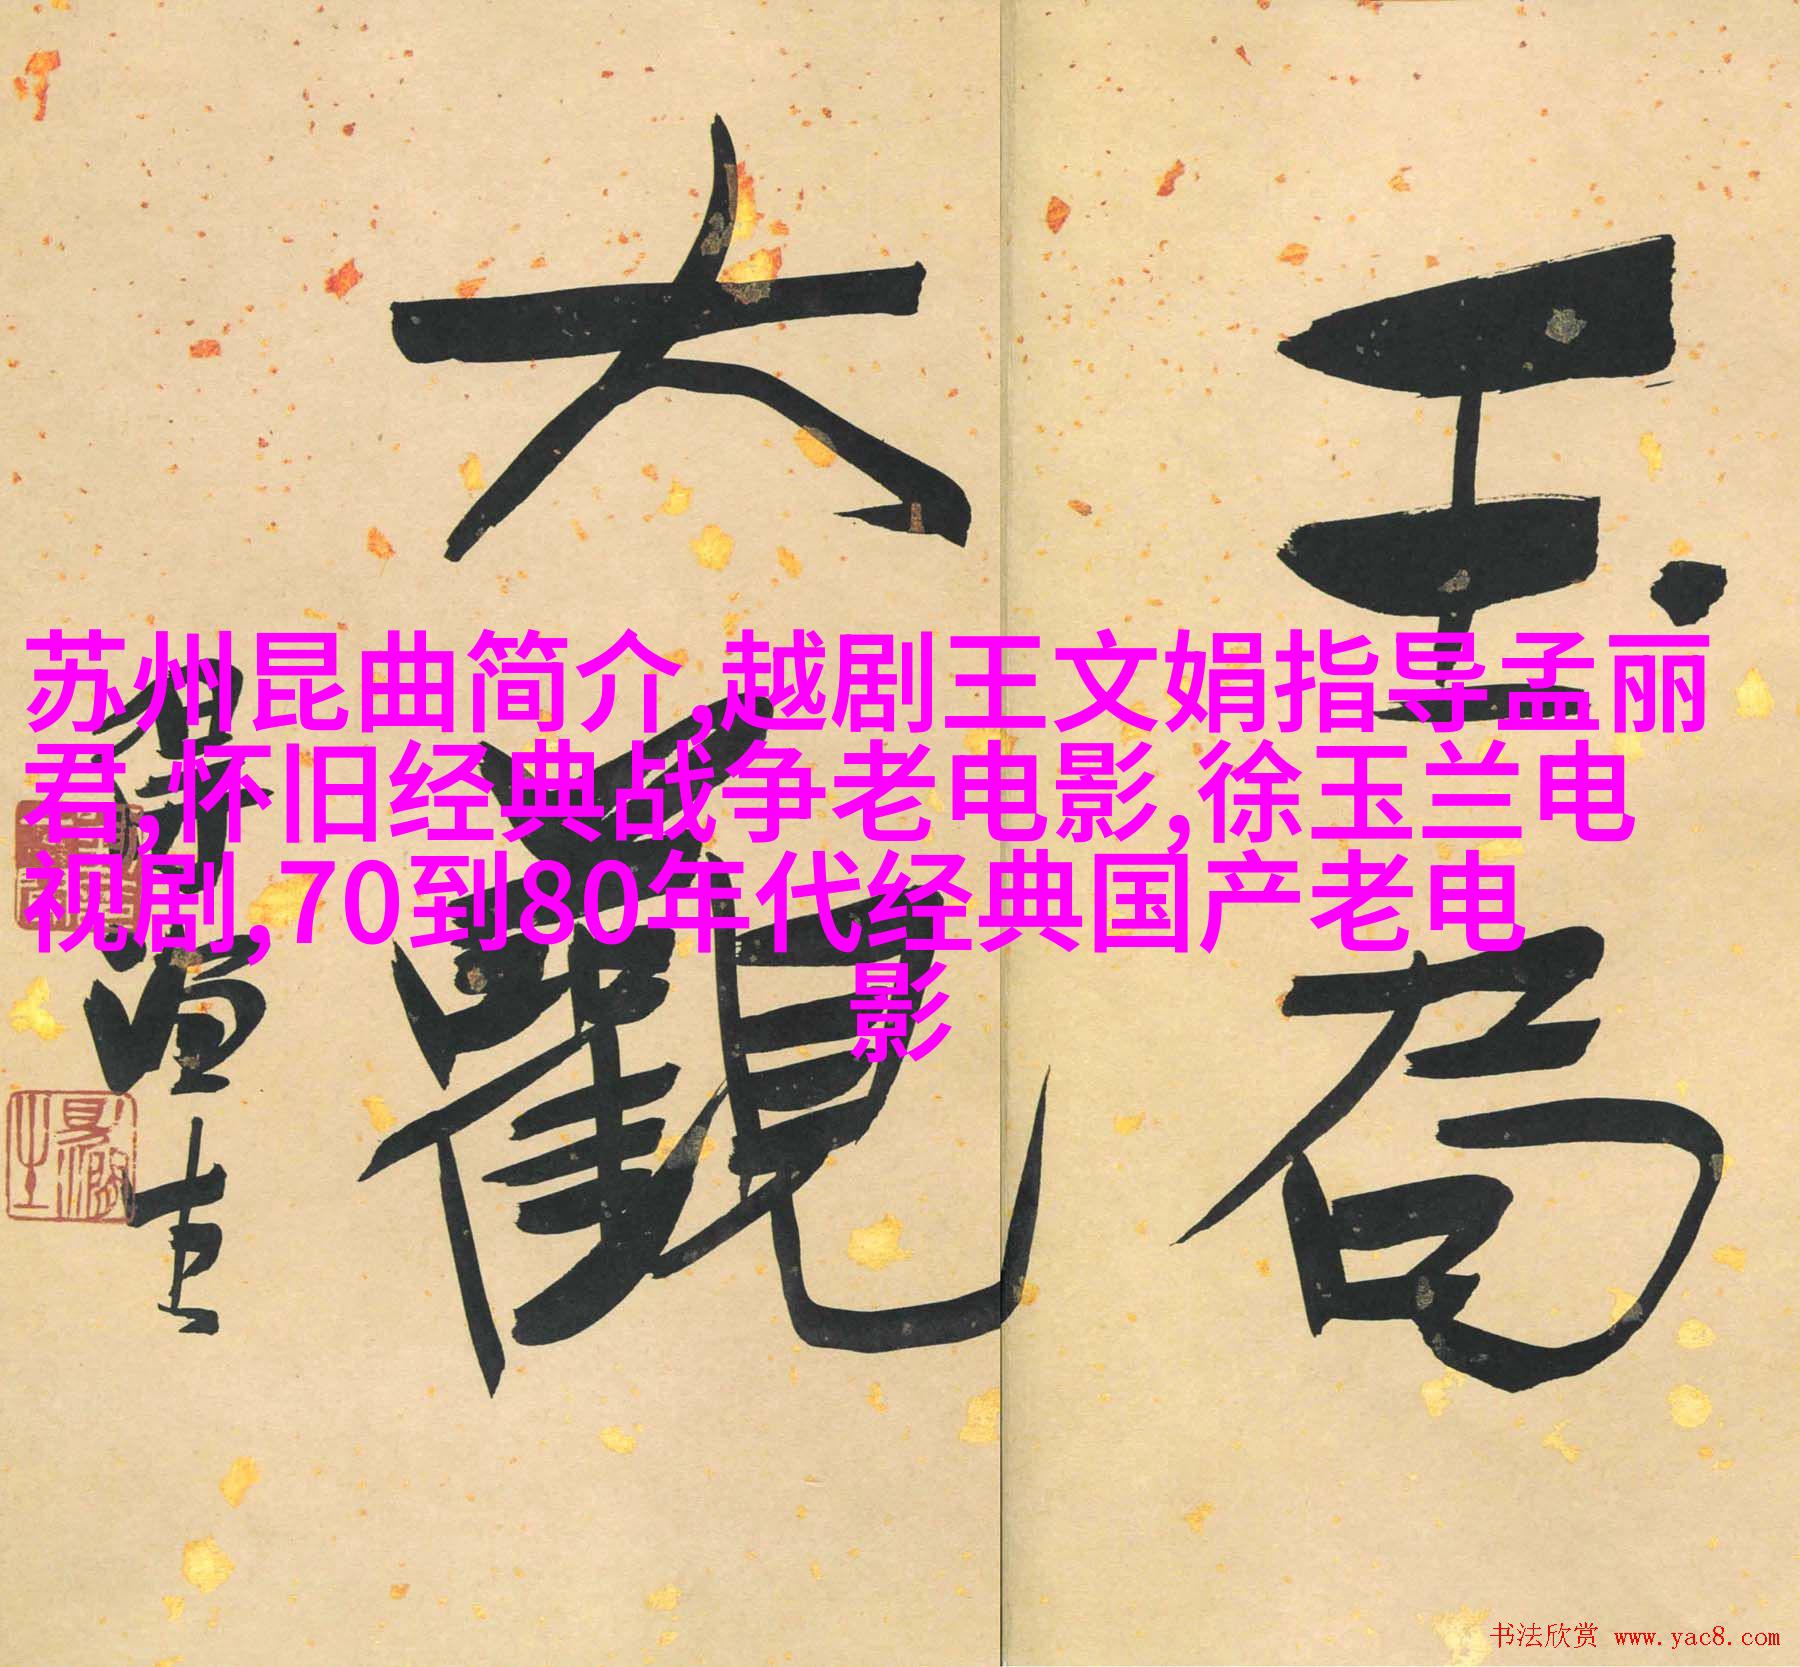 苏州昆曲简介,越剧王文娟指导孟丽
君,怀旧经典战争老电影,徐玉兰电
视剧,70到80年代经典国产老电
影
玉局
大觀
书法欣赏 www.yac8.com